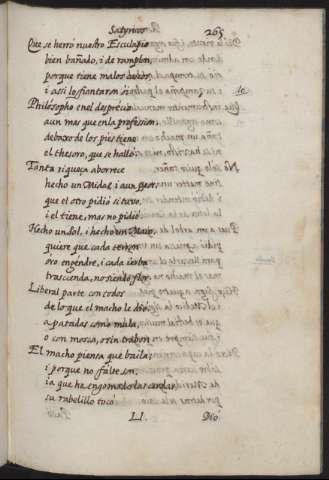 Satyricos
265
Que se herrò nuestro Esculapio
bien bañado, i de ramplon,
porque tiene malos
i assi lo fiantaron oi
Philosopho en el desprecio
aun mas que en la profession
debaxo de los pies tiene
el thesoro, que se hallò.
Tanta riqueça aborrece
hecho un Midas, i aun peor,
que el otro pidio si tuvo,
i el tiene, mas no pidio
Hecho un Sol, i hecho un Maio,
quiere que cada terron
oro engendre, i cada ierba
trascienda, no siendo flor.
Liberal parte con todos
de lo que el macho le diò,
a patadas como mula,
o con morca, o sin trabon
El macho piensa que baila;
i porque no falte son,
ia que ha engomado las cerdas
su rabelillo tocò
LI.
Diò